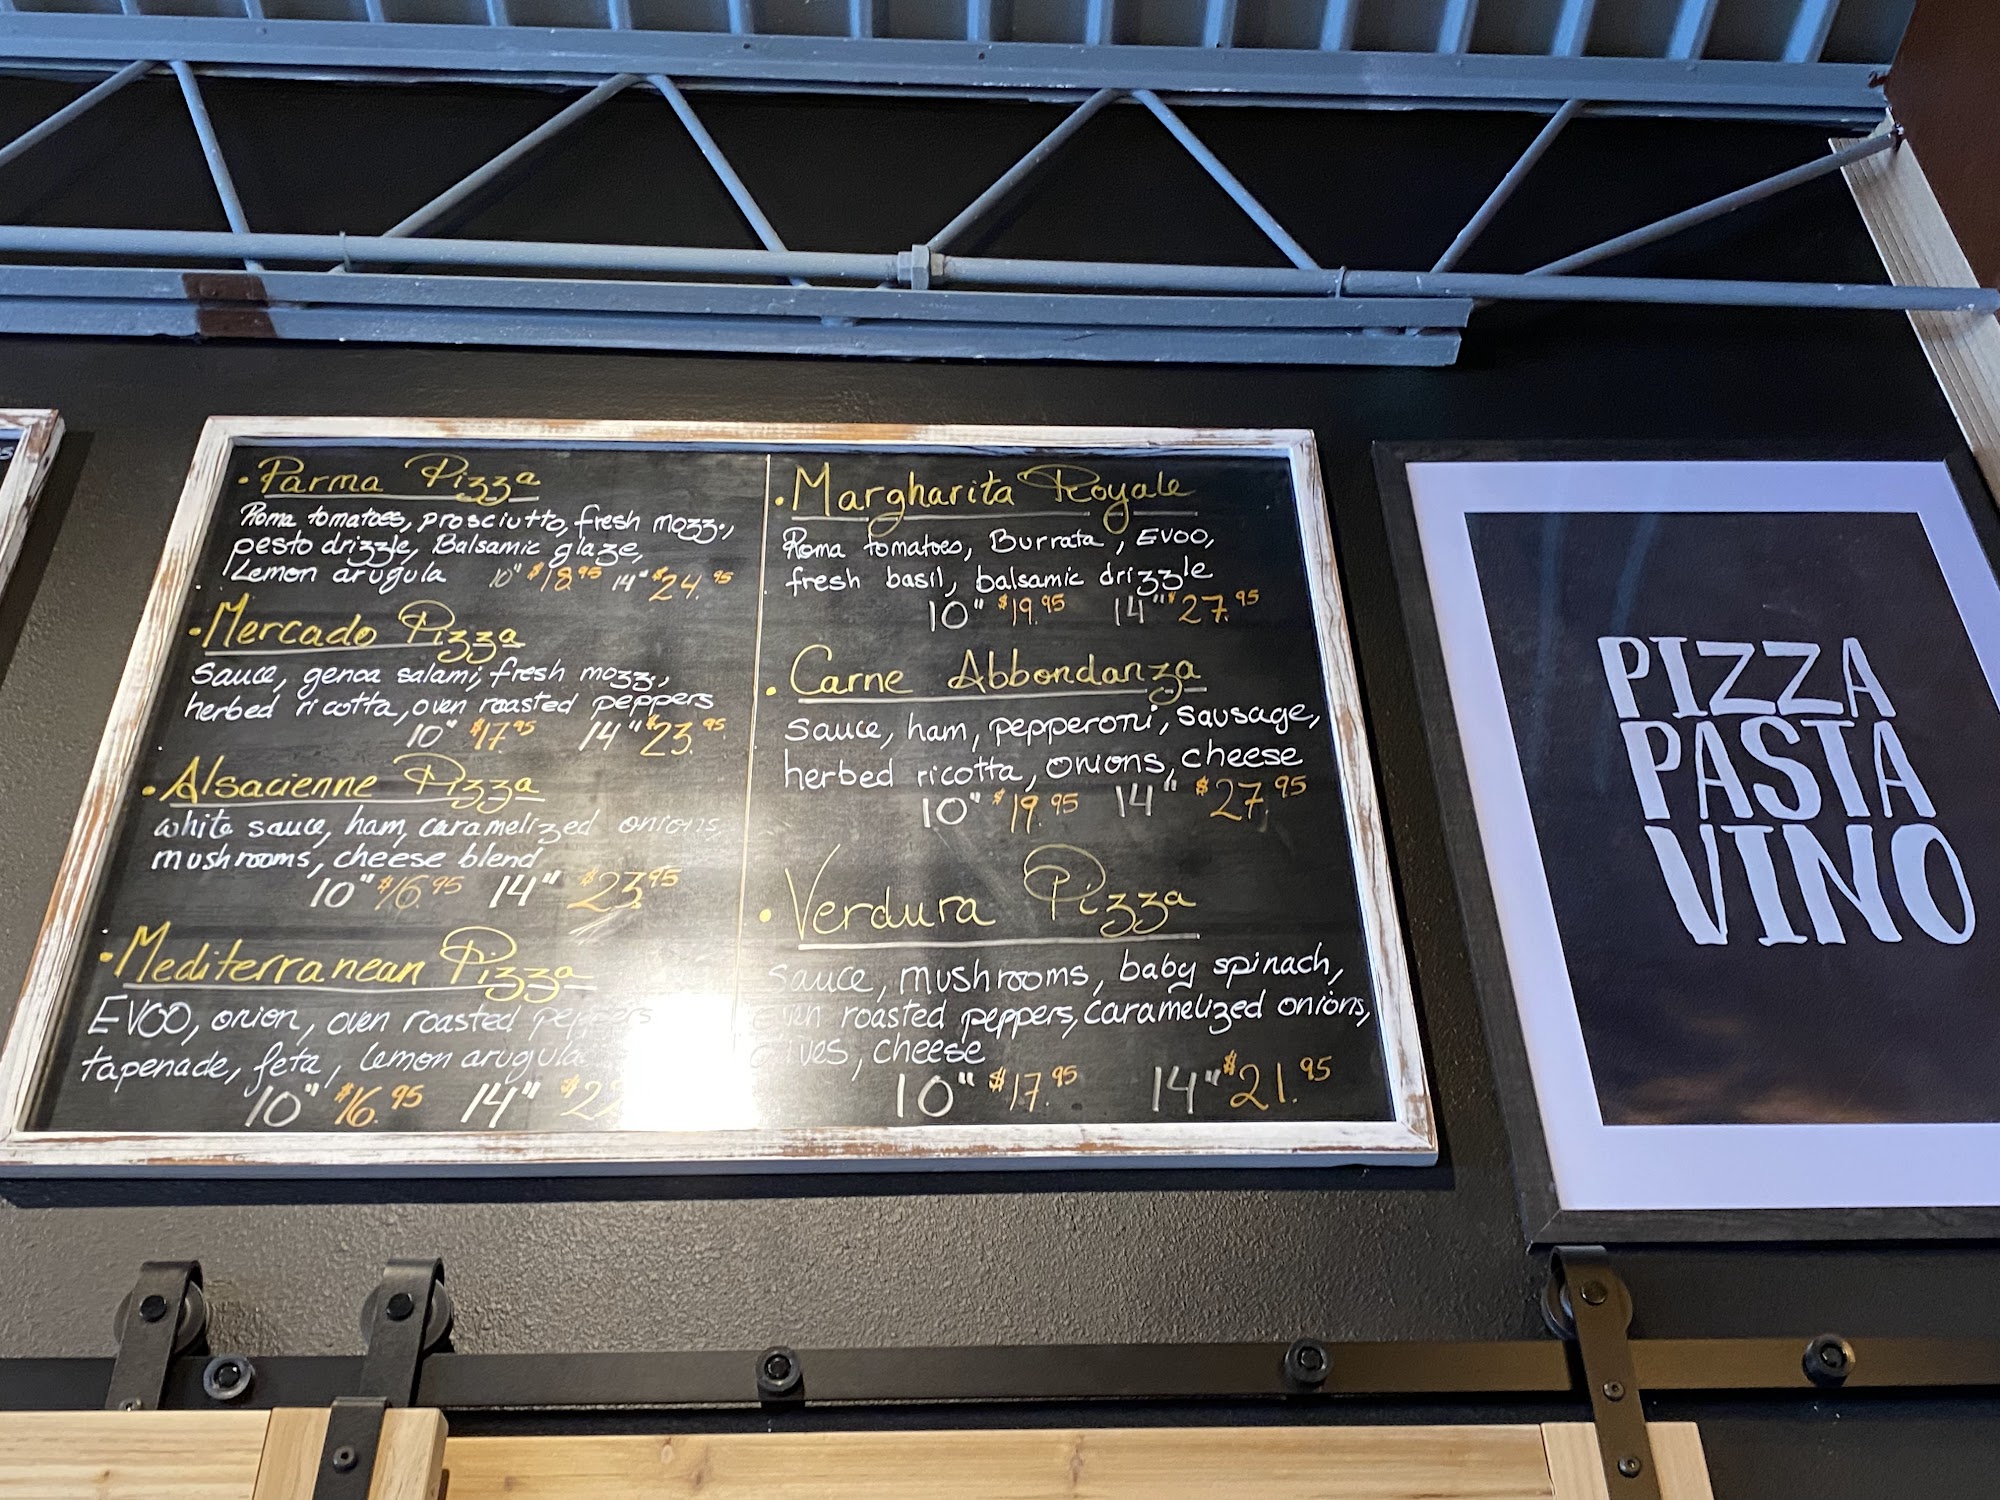 • Parma Pizza
Roma tomatoes, prosciutto, fresh mozz.,
pesto drizzle, Balsamic glaze,
Lemon arugula 10" $18.95 14" $24.95
• Mercado Pizza
Sauce, genoa salami, fresh mozz.,
herbed ricotta, oven roasted peppers
10" $17.95 14" $23.95
• Alsacienne Pizza
white sauce, ham, caramelized onions,
mushrooms, cheese blend
10" $16.95 14" $23.95
• Mediterranean Pizza
EVOO, onion, oven roasted peppers
tapenade, feta, Lemon arugula
10" $16.95 14"
• Margharita Royale
Roma tomatoes, Burrata, EVOO,
fresh basil, balsamic drizzle
10" $19.95 14" $27.95
• Carne Abbondanza
sauce, ham, pepperoni, sausage,
herbed ricotta, onions, cheese
10" $19.95 14" $27.95
• Verdura Pizza
Sauce, mushrooms, baby spinach,
roasted peppers, caramelized onions,
cheese
10" $17.95 14" $21.95
PIZZA
PASTA
VINO